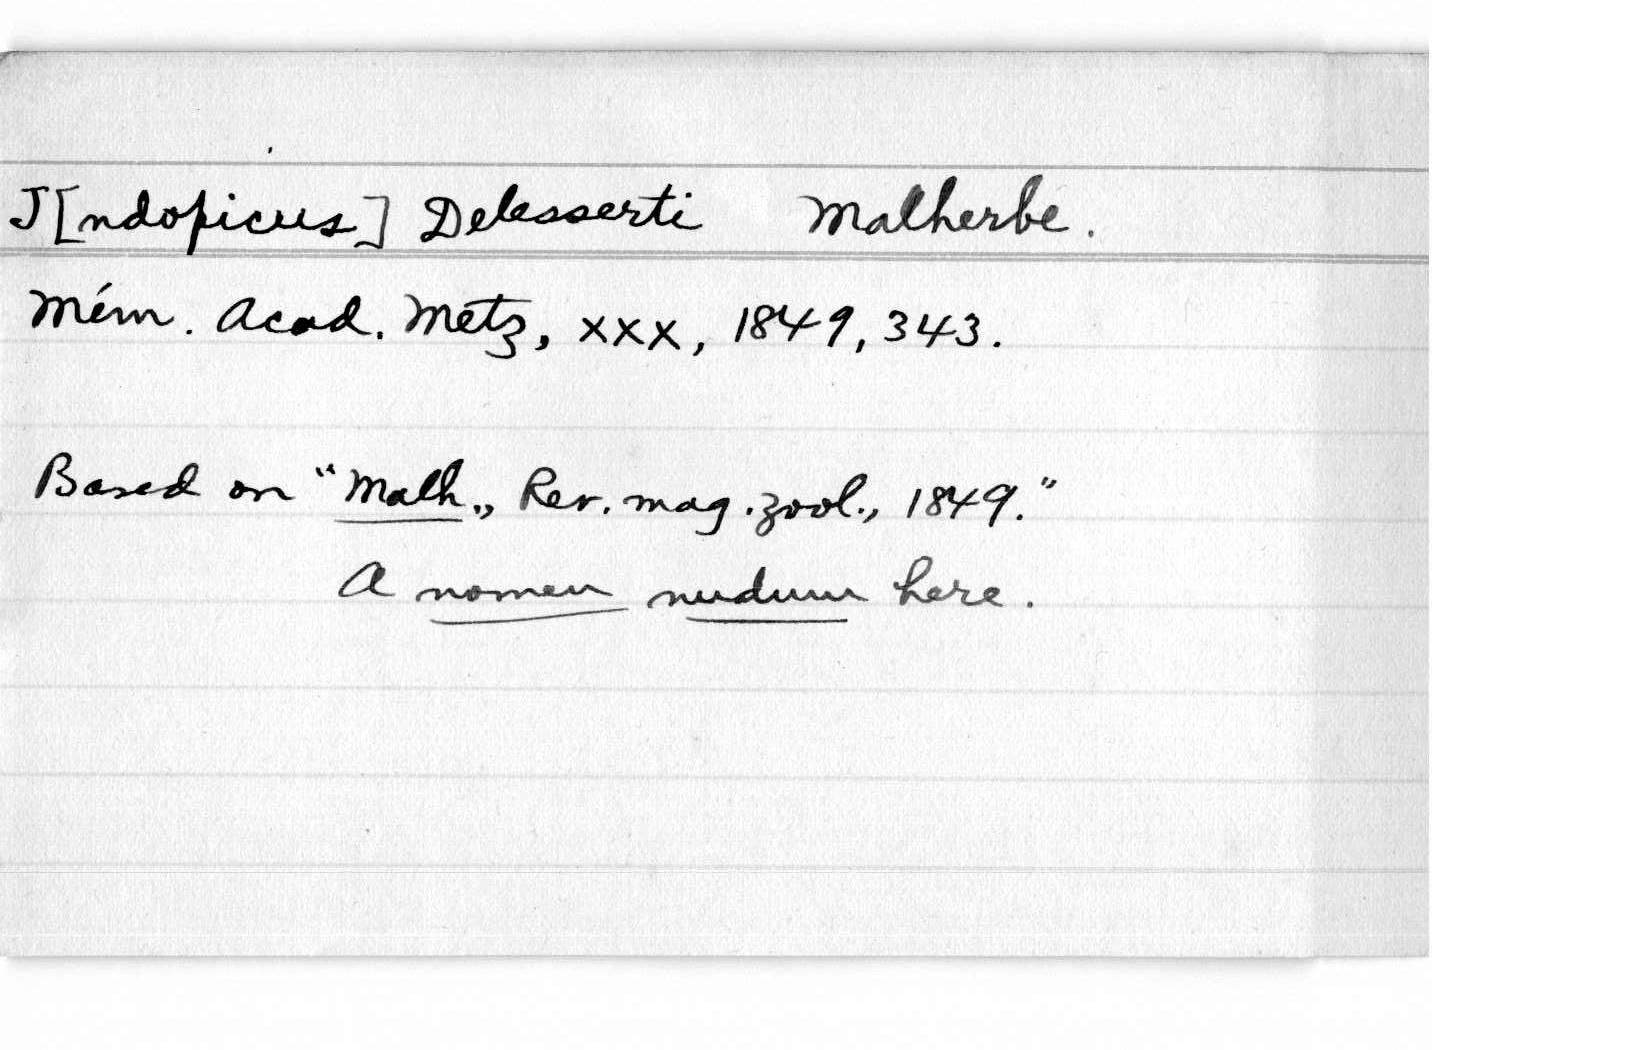 I[ndopicus] Delesserti Malherbe.
Mém. Acad. Metz, xxx, 1849, 343.
Based on "Malh., Rev. mag. zool., 1849."
A nomen nudum here.